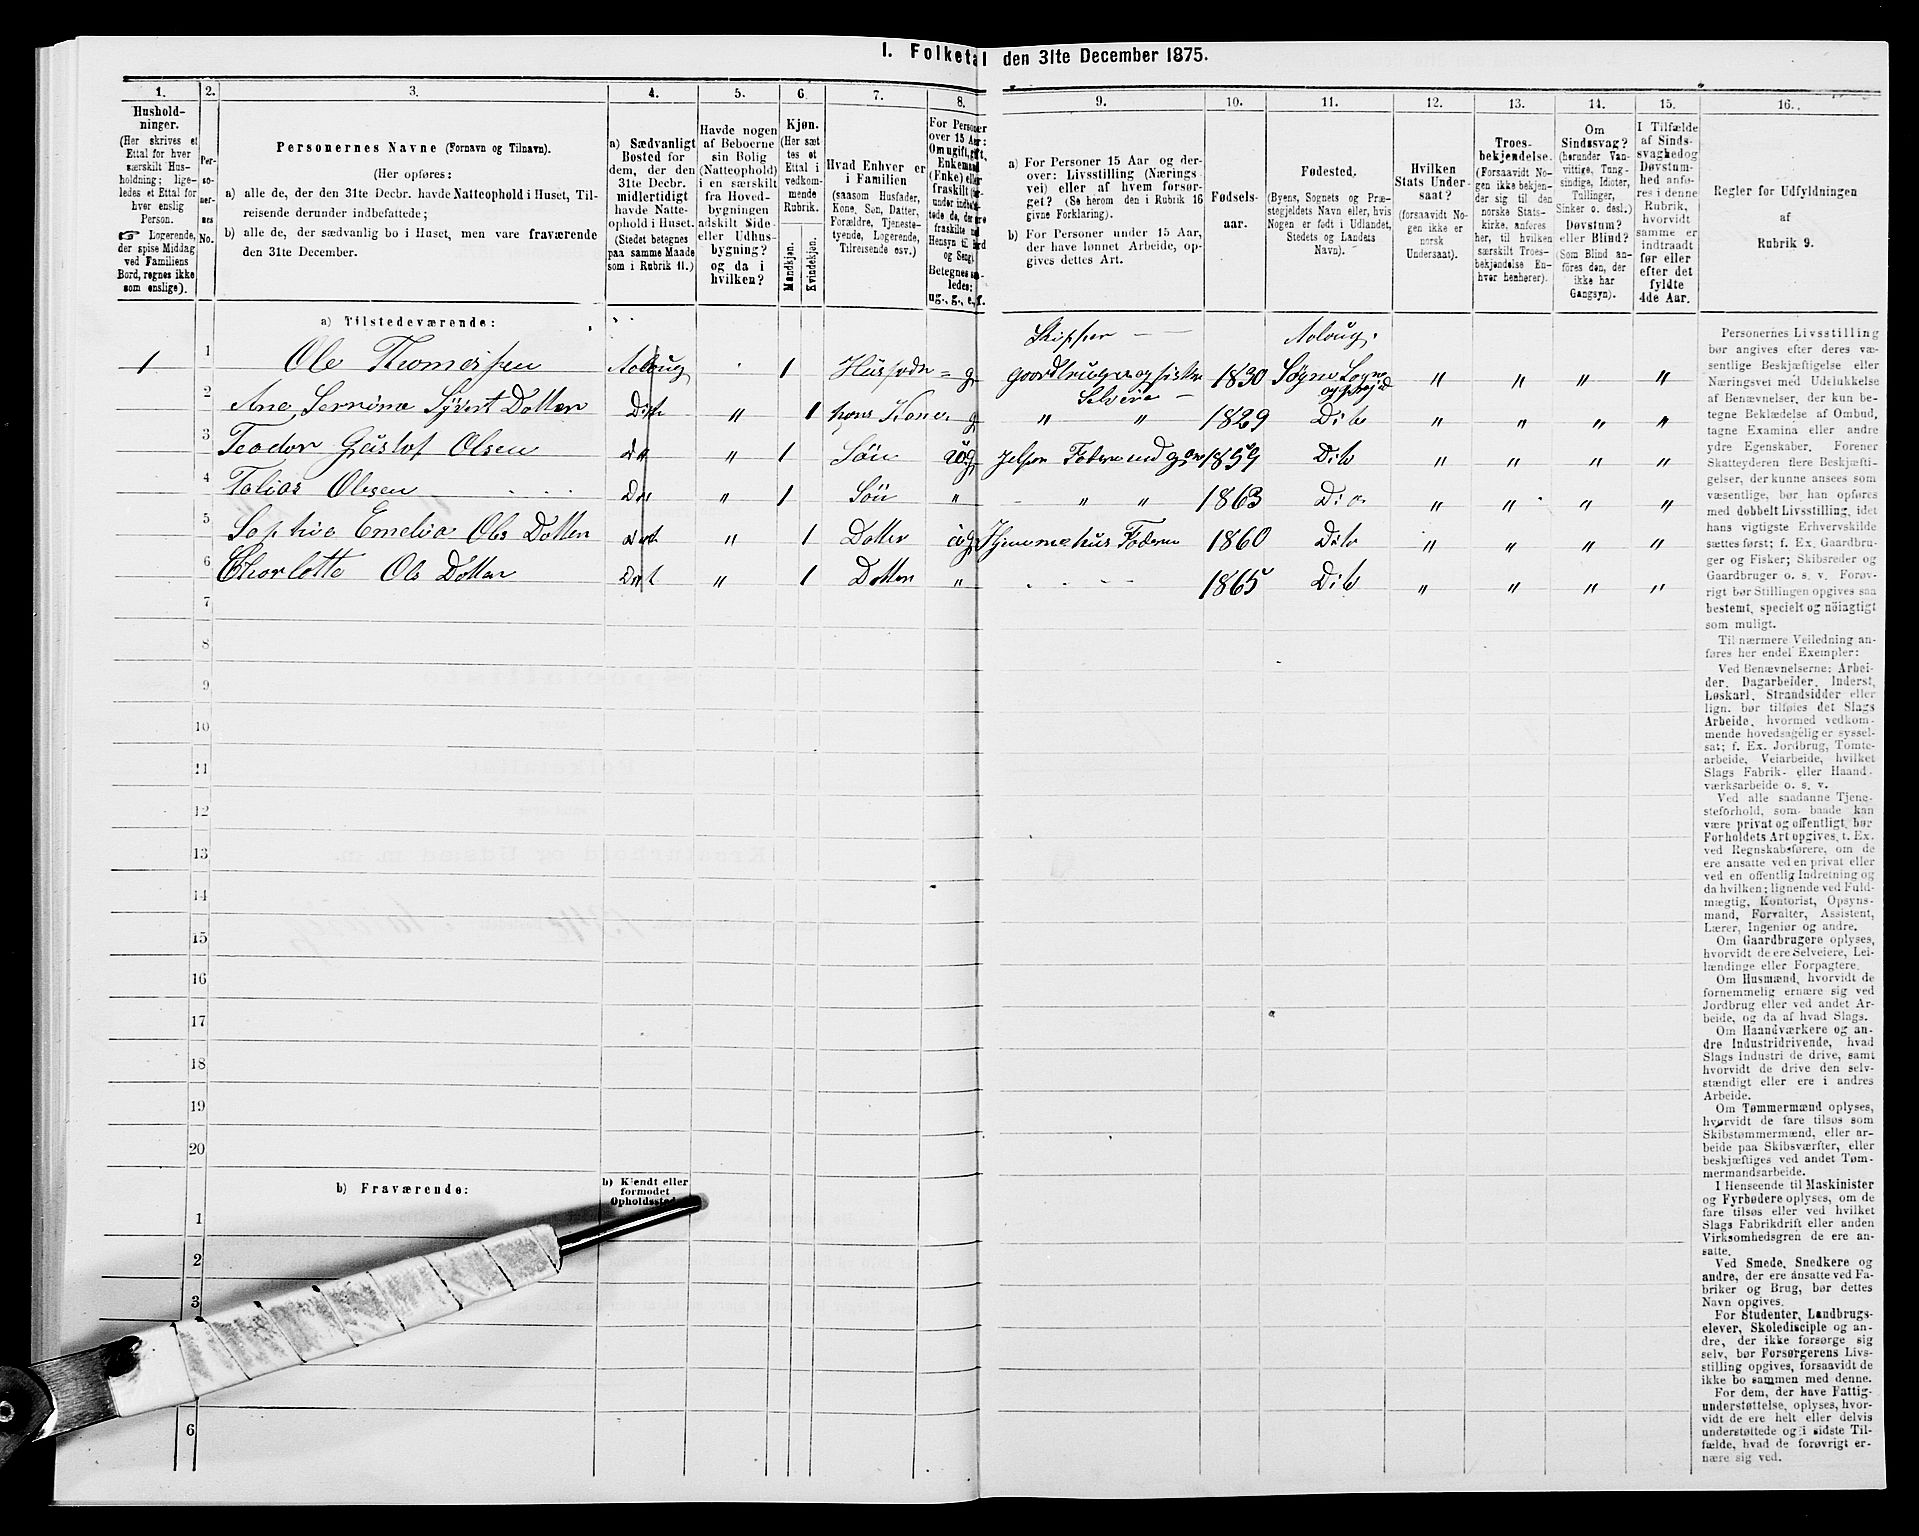 I. Folketal den 31te December 1875.
1.
2.
3.
4.
5.
6.
7.
8.
9.
10.
11.
12.
13.
14.
15.
16.
Hushold-
ninger.
(Her skrives et
Ettal for hver
særskilt Hus-
holdning; lige-
ledes et Ettal for
hver enslig
Person.
☞ Logerende,
der spise Middag
ved Familiens
Bord, regnes ikke
som enslige).
Per-
so-
ner-
nes
No.
Personernes Navne (Fornavn og Tilnavn).
(Her opføres:
a) alle de, der den 31te Decbr. havde Natteophold i Huset, Til-
reisende derunder indbefattede;
b) alle de, der sædvanlig bo i Huset, men vare fraværende
den 31te December.
a) Sædvanligt
Bosted for
dem, der den
31te Decbr.
midlertidigt
havde Natte-
ophold i Huset.
(Stedet betegnes
paa samme Maade
som i Rubrik 11.)
Havde nogen
af Beboerne
sin Bolig
(Natteophold)
i en særskilt
fra Hoved-
bygningen
adskilt Side-
eller Udhus-
bygning?
og da i
hvilken?
Kjøn.
(Her sæt
tes et
Ettal i
vedkom-
mende
Rubrik.
Mandkjøn.
Kvindekjøn.
Hvad Enhver er
i Familien
(saasom Husfader,
Kone, Søn, Datter,
Forældre, Tjeneste-
tyende, Logerende,
Tilreisende osv.)
For Personer
over 15 Aar:
Om ugift, gift,
Enkemand
(Enke) eller
fraskilt
Betegnes saa-
ledes:
ug., g., e., f.
a) For Personer 15 Aar og der-
over: Livsstilling (Nærings-
vei) eller af hvem forsør-
get? (Se herom den i Rubrik 16
givne Forklaring).
b) For Personer under 15 Aar,
der have lønnet Arbeide, op-
gives dettes Art.
Fødsels-
aar.
Fødested.
(Byens, Sognets og Præ-
stegjeldets Navn eller, hvis
Nogen er født i Udlandet,
Stedets og Landets
Navn).
Hvilken
Stats Under-
saat?
(forsaavidt No-
gen ikke er
norsk
Undersaat).
Troes-
bekjendelse.
(Forsaavidt No-
gen ikke bekjen-
der sig til den
norske Stats-
kirke, anføres
her, til hvilken
særskilt Troes-
bekjendelse En-
hver henhører).
Om
Sindssvag?
(herunder Van-
vittige, Idioter,
Tullinger,
Sinker o. desl.)
Døvstum?
eller Blind?
(Som Blind an-
føres den, der
ikke har
Gangsyn).
I Tilfælde
af Sinds-
svaghed og
Døvstum-
hed anfø-
res i denne
Rubrik,
hvorvidt
samme er
indtraadt
før eller
efter det
fyldte
4de Aar.
Regler før Udfyldningen
af
Rubrik 9.
a) Tilstedeværende:
Skipper Aaloug.
1 1 Ole Thomessen Aaloug 1 Husfader g gaardbruger og fisker 1830 Søgne Sogn " " " "
Selveier
2 Ane Serrine Syvert Datter Dito " 1 hans Kone g " " 1829 Dito " " " "
3 Teodor Gustof Olsen " 1 Søn ug 1859 Dito " " " "
4 Tobias Olesen " 1 Søn " " " 1863 " " " "
5 Sophie Emelia Ols Datter " 1 Datter ug Hjemmehus Faderen 1860 Dito " " " "
6 Charlotte Ols Datter " 1 Datter " 1865 Dito " " " "
7
8
9
10
11
12
13
14
15
16
17
18
19
20
b) Fraværende:
b) Kjendt eller
formodet
Opholdssted
1
2
3
6
Personernes Livsstilling
bør angives efter deres væ-
sentlige Beskjæftigelse eller
Næringsvei med Udelukkelse
af Benævnelser, der kun be-
tegne Beklædelse af Ombud,
tagne Examina eller andre
ydre Egenskaber. Forener
Skatteyderen flere Beskjæfti-
gelser, der kunne ansees som
væsentlige, bør han opføres
med dobbelt Livsstilling, idet
hans vigtigste Erhvervskilde
sættes først; f. Ex. Gaardbru-
ger og Fisker; Skibsreder og
Gaardbruger o. s. v. Forøv-
rigt bør Stillingen opgives saa
bestemt, specielt og nøiagtigt
som muligt.
Til nærmere Veiledning an-
føres her endel Exempler:
Ved Benævnelserne: Arbei-
der, Dagarbeider, Inderst,
Løskarl, Strandsidder eller
lign. bør tilføies det Slags
Arbeide, hvormed vedkom-
mende hovedsagelig er syssel-
sat; f. Ex. Jordbrug, Tomte-
arbeide, Veiarbeide, hvilket
Slags Fabrik- eller Haand-
værksarbeide o. s. v.
Ved alle saadanne Tjene-
steforhold, som baade kan
være privat og offentligt, bør
Forholdets Art opgives, f. Ex.
ved Regnskabsførere, om de
ere ansatte ved en privat eller
ved en offentlig Indretning og
da hvilken; lignende ved Fuld-
mægtig, Kontorist, Opsyns-
mand, Forvalter, Assistent,
Lærer, Ingeniør og andre.
Om Gaardbrugere oplyses,
hvorvidt de ere Selveiere, Lei-
lændinge eller Forpagtere.
Om Husmænd, hvorvidt de
fornemmelig ernære sig ved
Jordbrug eller ved andet Ar-
beide, og da af hvad Slags.
Om Haandværkere og an-
dre Industridrivende, hvad
Slags Industri de drive, samt
hvorvidt de drive den selv-
stændigt eller ere i andres
Arbeide.
Om Tømmermænd oplyses,
hvorvidt de fare tilsøs som
Skibstømmermænd, eller ar-
beide paa Skibsværfter, eller
beskjæftiges ved andet Tøm-
mermandsarbeide.
I Henseende til Maskinister
og Fyrbødere oplyses, om de
fare tilsøs eller ved hvilket
Slags Fabrikdrift eller anden
Virksomhedsgren de ere an-
satte.
Ved Smede, Snedkere og
andre, der ere ansatte ved Fa-
briker og Brug, bør dettes
Navn opgives.
For Studenter, Landbrugs-
elever, Skoledisciple og an-
dre, der ikke forsørge sig
selv, bør Forsørgerens Livs-
stilling opgives, forsaavidt de
ikke bo sammen med denne.
For dem, der have Fattig-
understøttelse, oplyses, hvor-
vidt de ere helt eller delvis
understøttede og i sidste Til-
fælde, hvad de forøvrigt er-
nære sig ved.